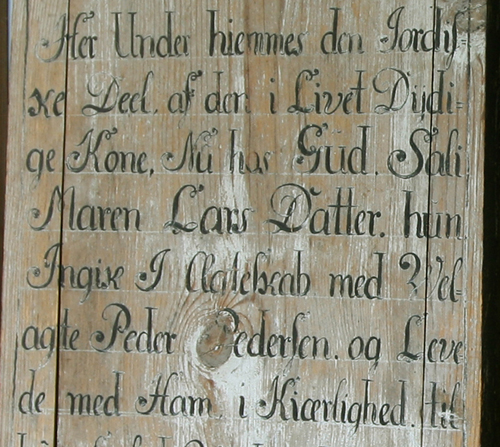 Her Under hiemmes den Jordis-
ke Deel. af den i Livet Dÿdi-
ge Kone, Nu hos Gud. Sali
Maren Lars Datter. hun
Ingik I Ægteskab med Vel-
agte Peder Pedersen. og Leve
de med Ham. i Kiærlighed. til